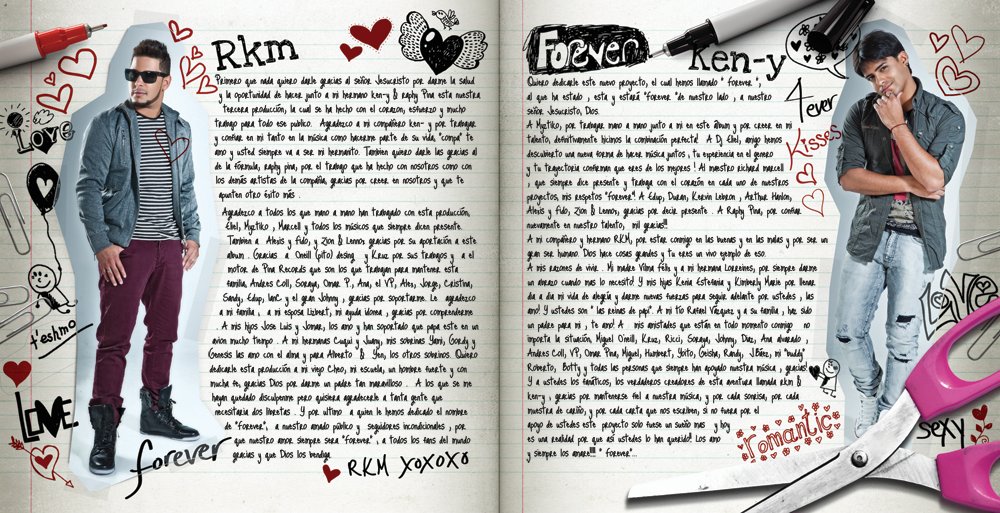 Rkm
Primero que nada quiero darle gracias al señor Jesucristo por darme la salud
y la oportunidad de hacer junto a mi hermano ken-y & raphy Pina esta nuestra
tercera producción, la cual se ha hecho con el corazon, esfuerzo y mucho
trabajo para todo ese publico. Agradezco a mi compañero ken-y por trabajar
y confiar en mi tanto en la música como hacerme parte de su vida, "compa" te
amo y usted siempre va a ser mi hermanito. Tambien quiero darle las gracias al
de la fórmula, raphy pina, por el trabajo que ha hecho con nosotros como con
los demás artistas de la compañia, gracias por creer en nosotros y que te
apunten otro éxito más .
Agradezco a todos los que mano a mano han trabajado con esta producción,
Eliel, Myztiko , Marcell y todos los músicos que siempre dicen presente.
Tambien a Alexis y fido, y Zion & Lennox gracias por su aportación a este
album . Gracias a Onell (pito) desing y Kruz por sus trabajos y a el
motor de Pina Records que son los que trabajan para mantener esta
familia, Andres Coll, Soraya, Omar P, Ana, el VP, Alex, Jorge, Cristina,
Sandy, Edup, IanC y el gran Johnny , gracias por soportarme. Le agradezco
a mi familia , a mi esposa Lizbert, mi ayuda idonea , gracias por comprenderme
. A mis hijos Jose Luis y Jomar, los amo y han soportado que papa este en un
avion mucho tiempo . A mi hermanas Cuqui y Juany, mis sobrinas Yarni, Gordy y
Genesis las amo con el alma y para Alverto & Yen, los otros sobrinos. Quiero
dedicarle esta producción a mi viejo Cheo, mi escuela, un hombre fuerte y con
mucha fe, gracias Dios por darme un padre tan maravilloso . A los que se me
hayan quedado disculpenme pero quisiera agradecerle a tanta gente que
necesitaria dos libretas . Y por ultimo a quien le hemos dedicado el nombre
de "forever", a nuestro amado público y seguidores incondicionales , por
que nuestro amor siempre sera "forever" , a todos los fans del mundo
gracias y que Dios los bendiga
RKM XoXoXo
Love
t'eshmo
LOVE
forever
Forever
Ken-y
Quiero dedicarle este nuevo proyecto, el cual hemos llamado " forever ",
al que ha estado , esta y estará "forever "de nuestro lado , a nuestro
señor Jesucristo, Dios.
A Myztiko, por trabajar mano a mano junto a mi en este álbum y por creer en mi
talento, definitivamente hicimos la combinación perfecta! A Dj Eliel, amigo hemos
descubierto una nueva forma de hacer música juntos , tu experiencia en el genero
y tu trayectoria confirman que eres de los mejores ! Al maestro richard marcell
, que siempre dice presente y trabaja con el corazón en cada uno de nuestros
proyectos, mis respetos "forever"! A Edup, Duran, Kervin Lebron , Arthur Hanlon,
Alexis y fido, Zion & Lennox, gracias por decir presente . A Raphy Pina, por confiar
nuevamente en nuestro talento, mil gracias!!!
A mi compañero y hermano RKM, por estar conmigo en las buenas y en las malas y por ser un
gran ser humano. Dios hace cosas grandes y tu eres un vivo ejemplo de eso.
A mis razones de vivir : Mi madre Vilma Félix y a mi hermana Lorreines, por siempre darme
un abrazo cuando mas lo necesito! Y mis hijas Kenia Estefania y Kimberly Marie por llenar
dia a dia mi vida de alegría y darme nuevas fuerzas para seguir adelante por ustedes , las
amo! Y ustedes son " las reinas de papi". A mi tío Rafael Vázquez y a su familia , haz sido
un padre para mi , te amo! A mis amistades que están en todo momento conmigo no
importa la situación, Miguel O'neill, Kruz, Ricci, Soraya, Johnny, Daz, Ana alvarado ,
Andres Coll, VP, Omar Pina, Miguel, Humbert, Yoito, Geisha, Randy, J.Báez, mi "buddy"
Roberto, Botty y todas las personas que siempre han apoyado nuestra música , gracias!
Y a ustedes los fanáticos, los verdaderos creadores de esta aventura llamada rkm &
ken-y , gracias por mantenerse fiel a nuestra música, y por cada sonrisa, por cada
muestra de cariño, y por cada carta que nos escriben, si no fuera por el
apoyo de ustedes este proyecto solo fuese un sueño mas y hoy
es una realidad por que así ustedes lo han querido!! Los amo
y siempre los amare!!!! " forever"...
4ever
Kisses
LOVE
romantic
sexy